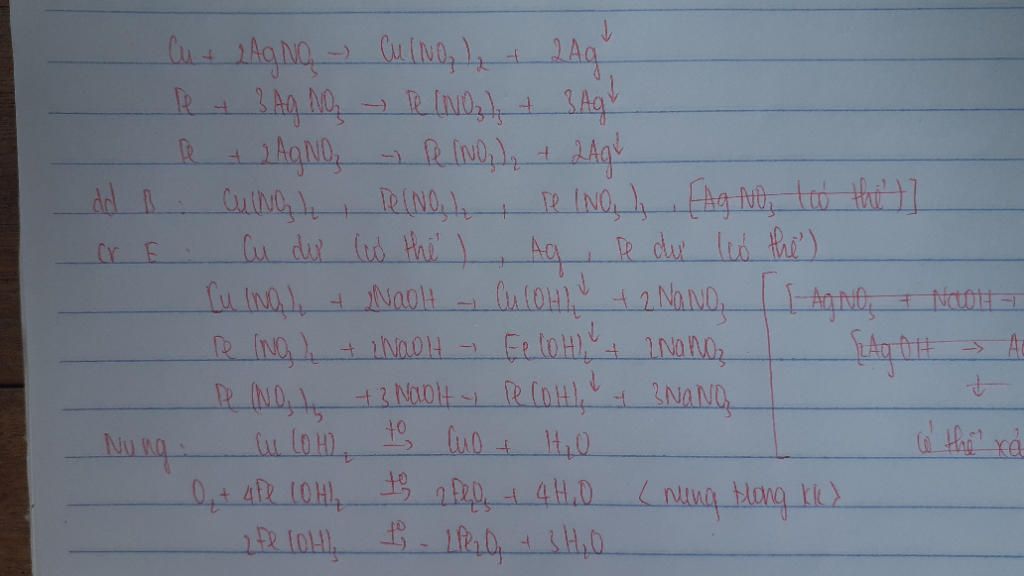 Cu + 2AgNO₃ → Cu(NO₃)₂ + 2Ag↓
Fe + 3AgNO₃ → Fe(NO₃)₃ + 3Ag↓
Fe + 2AgNO₃ → Fe(NO₃)₂ + 2Ag↓
dd B : Cu(NO₃)₂ , Fe(NO₃)₂ , Fe(NO₃)₃ , [AgNO₃ (có thể)]
cr E : Cu dư (có thể) , Ag , Fe dư (có thể)
Cu(NO₃)₂ + 2NaOH → Cu(OH)₂↓ + 2NaNO₃ [AgNO₃ + NaOH →
Fe(NO₃)₂ + 2NaOH → Fe(OH)₂↓ + 2NaNO₃ [2AgOH → A
Fe(NO₃)₃ + 3NaOH → Fe(OH)₃↓ + 3NaNO₃ ↓
Nung : Cu(OH)₂ t⁰→ CuO + H₂O có thể xả
O₂ + 4Fe(OH)₂ t⁰→ 2Fe₂O₃ + 4H₂O < nung trong kk >
2Fe(OH)₃ t⁰→ - 2Fe₂O₃ + 3H₂O